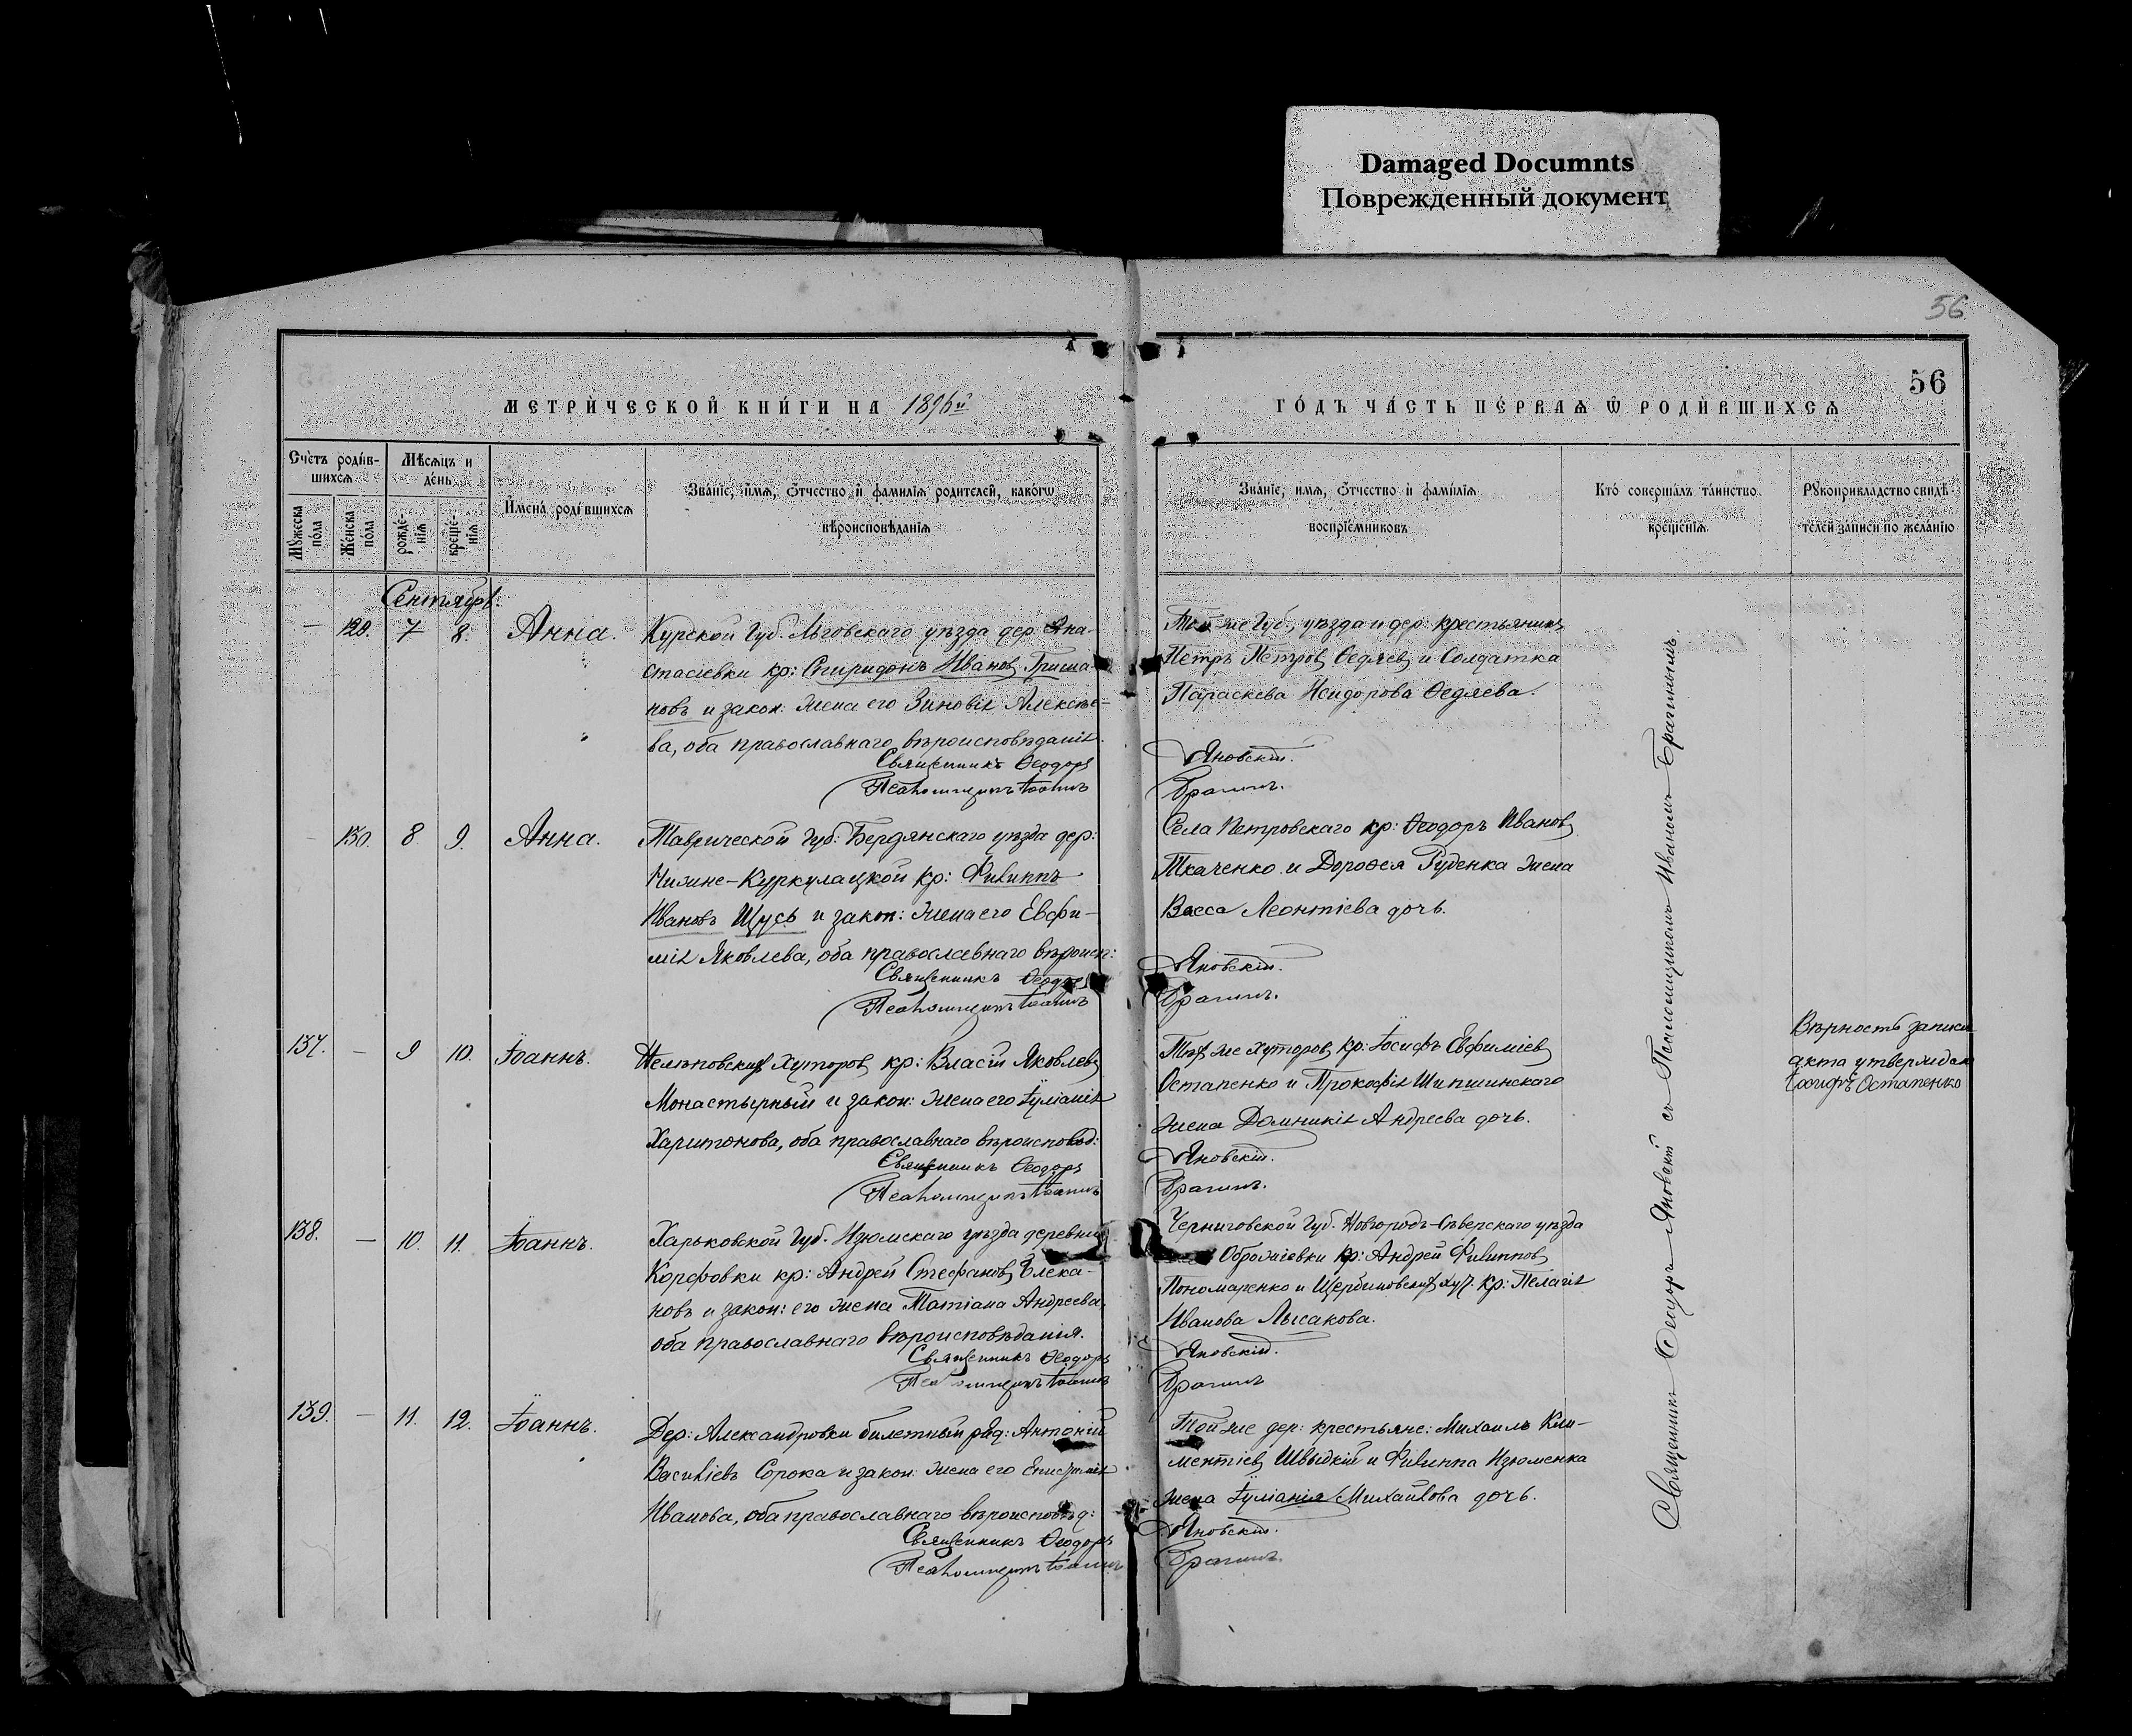 Damaged Documnts
Поврежденный документ
56
56
МЕТРИ́ЧЕСКОЙ КНИ́ГИ НА 1896й
ГО́ДЪ ЧА́СТЬ ПЕ́РВАѦ Ѿ РОДИ́ВШИХСѦ
Сче́тъ роди́в-
шихсѧ
Мꙋ́жеска по́ла
Же́нска по́ла
Мѣ́сѧцъ и
де́нь
рожде́-
нїѧ
креще́-
нїѧ
И҆мена̀ роди́вшихсѧ
Зва́нїе, и҆́мѧ, ѻ҆́тчество и҆ фами́лїѧ роди́телей, како́гѡ
вѣроисповѣ́данїѧ
Зва́нїе, имѧ, ѻ҆́тчество и҆ фами́лїѧ
воспрїе́мниковъ
Кто̀ соверша́лъ та́инство
креще́нїѧ
Рꙋкоприкла́дство свидѣ́-
телей за́писи по жела́нїю
Сентябрь.
— 129. 7 8. Анна.
Курской Губ. Льговскаго уѣзда дер. Ана-
стасіевки кр: Спиридонъ Ивановъ Гриша-
новъ и закон: жена его Зиновія Алексѣе-
ва, оба православнаго вѣроисповѣданія.
Священникъ Ѳеодоръ
Псаломщикъ Іоаннъ
Той же Губ., уѣзда и дер: крестьянинъ
Петръ Петровъ Ѳедяевъ и Солдатка
Параскева Исидорова Ѳедяева.
Яновскій.
Брагинъ.
— 130. 8. 9. Анна.
Таврической Губ: Бердянскаго уѣзда дер:
Нижне-Куркулацкой кр: Филиппъ
Ивановъ Щусь и закон: жена его Евфи-
мія Яковлева, оба православнаго вѣроисп:
Священникъ Ѳеодоръ
Псаломщикъ Іоаннъ
Села Петровскаго кр: Ѳеодоръ Ивановъ
Ткаченко и Дороѳея Руденка жена
Васса Леонтіева дочь.
Яновскій.
Брагинъ.
137. — 9 10. Іоаннъ.
Нелѣповскихъ Хуторовъ кр: Власій Яковлевъ
Монастырный и закон: жена его Іуліанія
Харитонова, оба православнаго вѣроисповѣд:
Священникъ Ѳеодоръ
Псаломщикъ Іоаннъ
Тѣхъ же Хуторовъ кр: Іосифъ Евфиміевъ
Остапенко и Прокофія Шипшинскаго
жена Домникія Андреева дочь.
Яновскій.
Брагинъ.
Вѣрность записи
акта утверждаю
Іосифъ Остапенко
138. — 10. 11. Іоаннъ.
Харьковской Губ. Изюмскаго уѣзда деревни
Корфовки кр: Андрей Стефановъ
новъ и закон: его жена Татіана Андреева,
оба православнаго вѣроисповѣданія.
Священникъ Ѳеодоръ
Псаломщикъ Іоаннъ
Черниговской Губ. Новгородъ-Сѣверскаго уѣзда
кр: Андрей Филипповъ
Пономаренко и Щербиновскихъ хут. кр: Пелагія
Иванова Лысакова.
Яновскій.
Брагинъ
139. — 11. 12. Іоаннъ.
Дер: Александровки билетный ряд: Антоній
Василіевъ Сорока и закон: жена его Епистимія
Иванова, оба православнаго вѣроисповѣд:
Священникъ Ѳеодоръ
Псаломщикъ Іоаннъ
Той же дер: крестьяне: Михаилъ Кли-
ментіевъ Швыдкій и Филиппа Изюменка
жена Іуліанія Михайлова дочь.
Яновскій.
Брагинъ.
Священникъ Ѳеодоръ Яновскій съ Псаломщикомъ Иваномъ Брагинымъ.